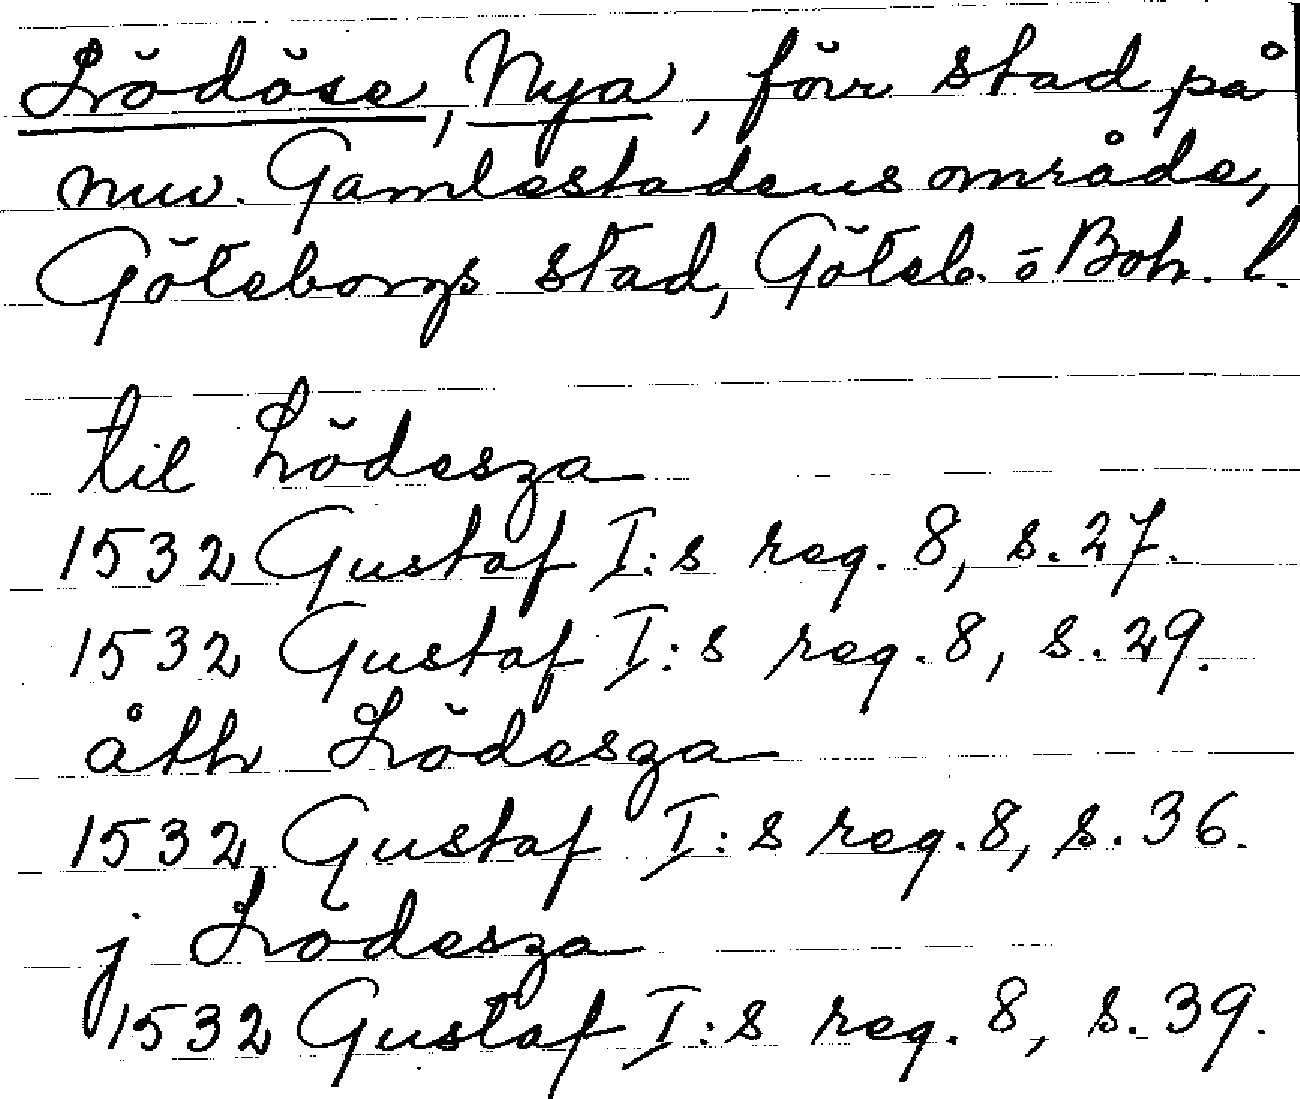 Lödöse, Nya, förr stad på
nuv. Gamlestadens område,
Göteborgs stad, Göteb. o Boh. l.
til Lödesza
1532 Gustaf I:s reg. 8, s. 27.
1532 Gustaf I:s reg. 8, s. 29.
åth Lödesza
1532 Gustaf I:s reg. 8, s. 36.
j Lodesza
1532 Gustaf I:s reg. 8, s. 39.